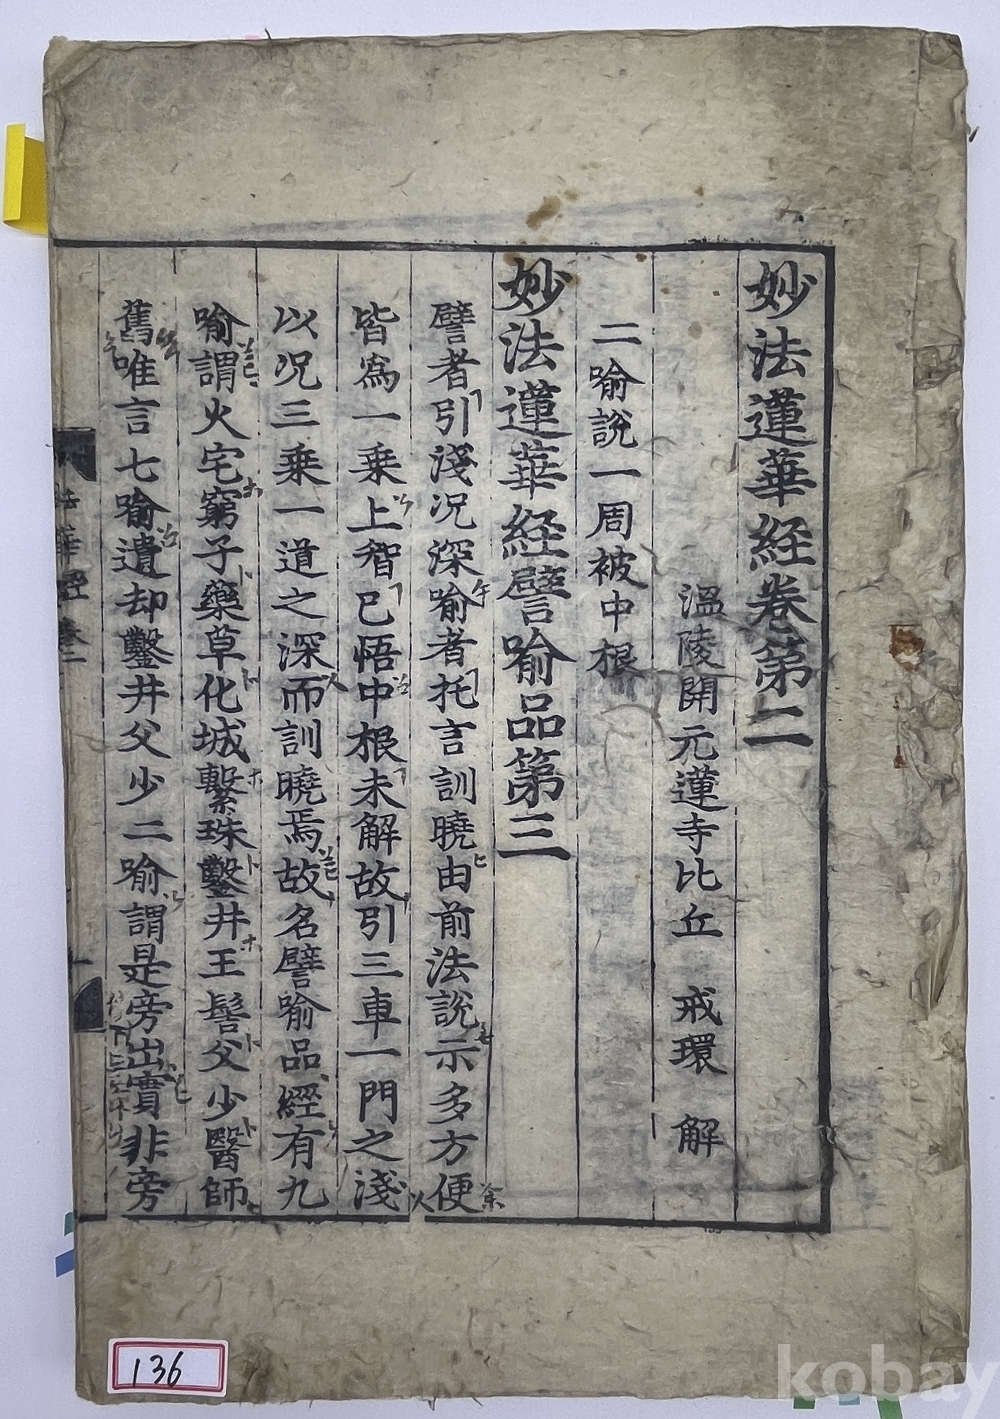 妙法蓮華経卷第二
溫陵開元蓮寺比丘 戒環 解
二喻說一周被中根
妙法蓮華経譬喻品第三
譬者引淺况深喻者托言訓曉由前法說示多方便
皆爲一乘上智已悟中根未解故引三車一門之淺
以况三乘一道之深而訓曉焉故名譬喻品經有九
喻謂火宅窮子藥草化城繫珠鑿井王髻父少醫師
舊唯言七喻遺却鑿井父少二喻謂是旁出實非旁
法華經卷二
136
kobay